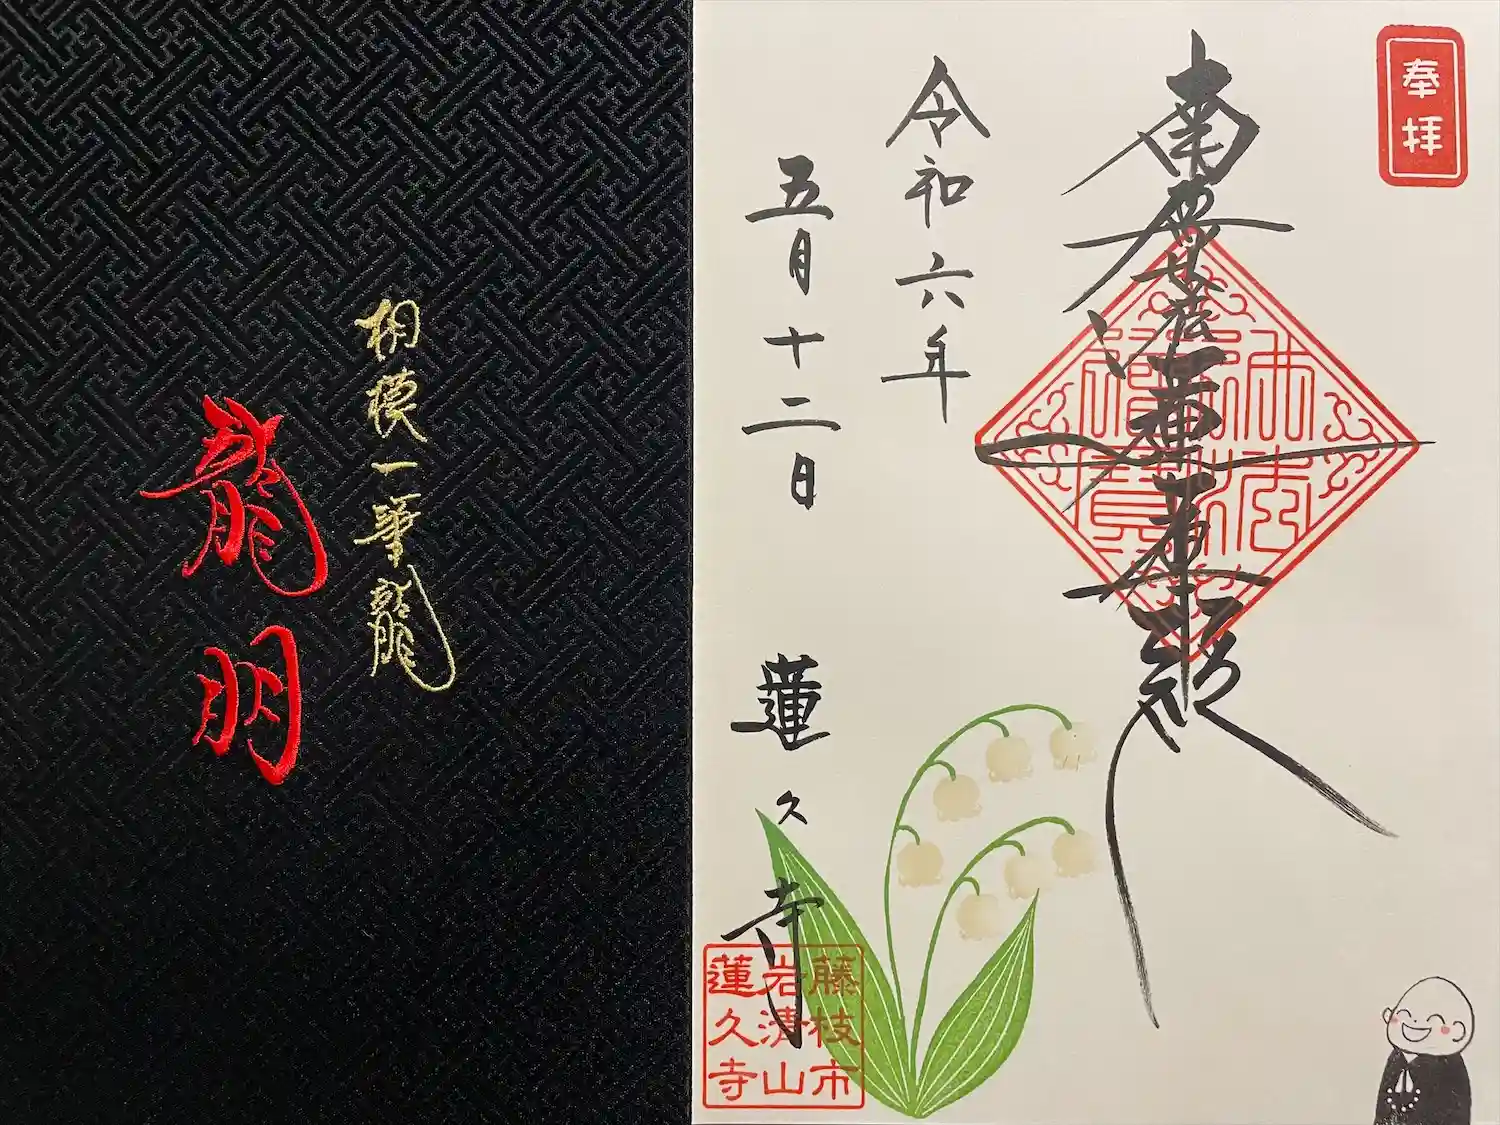 奉拝
南無妙法蓮華経
佛法
僧寶
令和六年
五月十二日
蓮久寺
藤枝市
岩清山
蓮久寺
相模一筆龍
龍